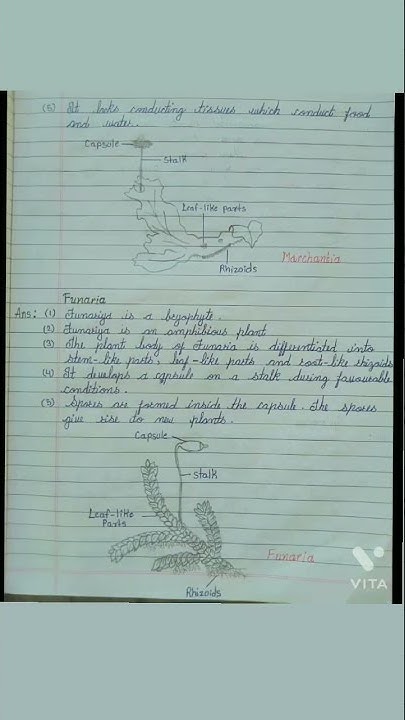 (5) It lacks conducting tissues which conduct food
and water.
Capsule
Stalk
Leaf-like parts
Rhizoids
Marchantia
Funaria
Ans: (1) Funariya is a bryophyte.
(2) Funariya is an amphibious plant
(3) The plant body of Funaria is differentiated into
stem-like parts, leaf-like parts and root-like rhizoids
(4) It develops a capsule on a stalk during favourable
conditions.
(5) Spores are formed inside the capsule. The spores
give rise to new plants.
Capsule
Stalk
Leaf-like
Parts
Funaria
Rhizoids
VITA